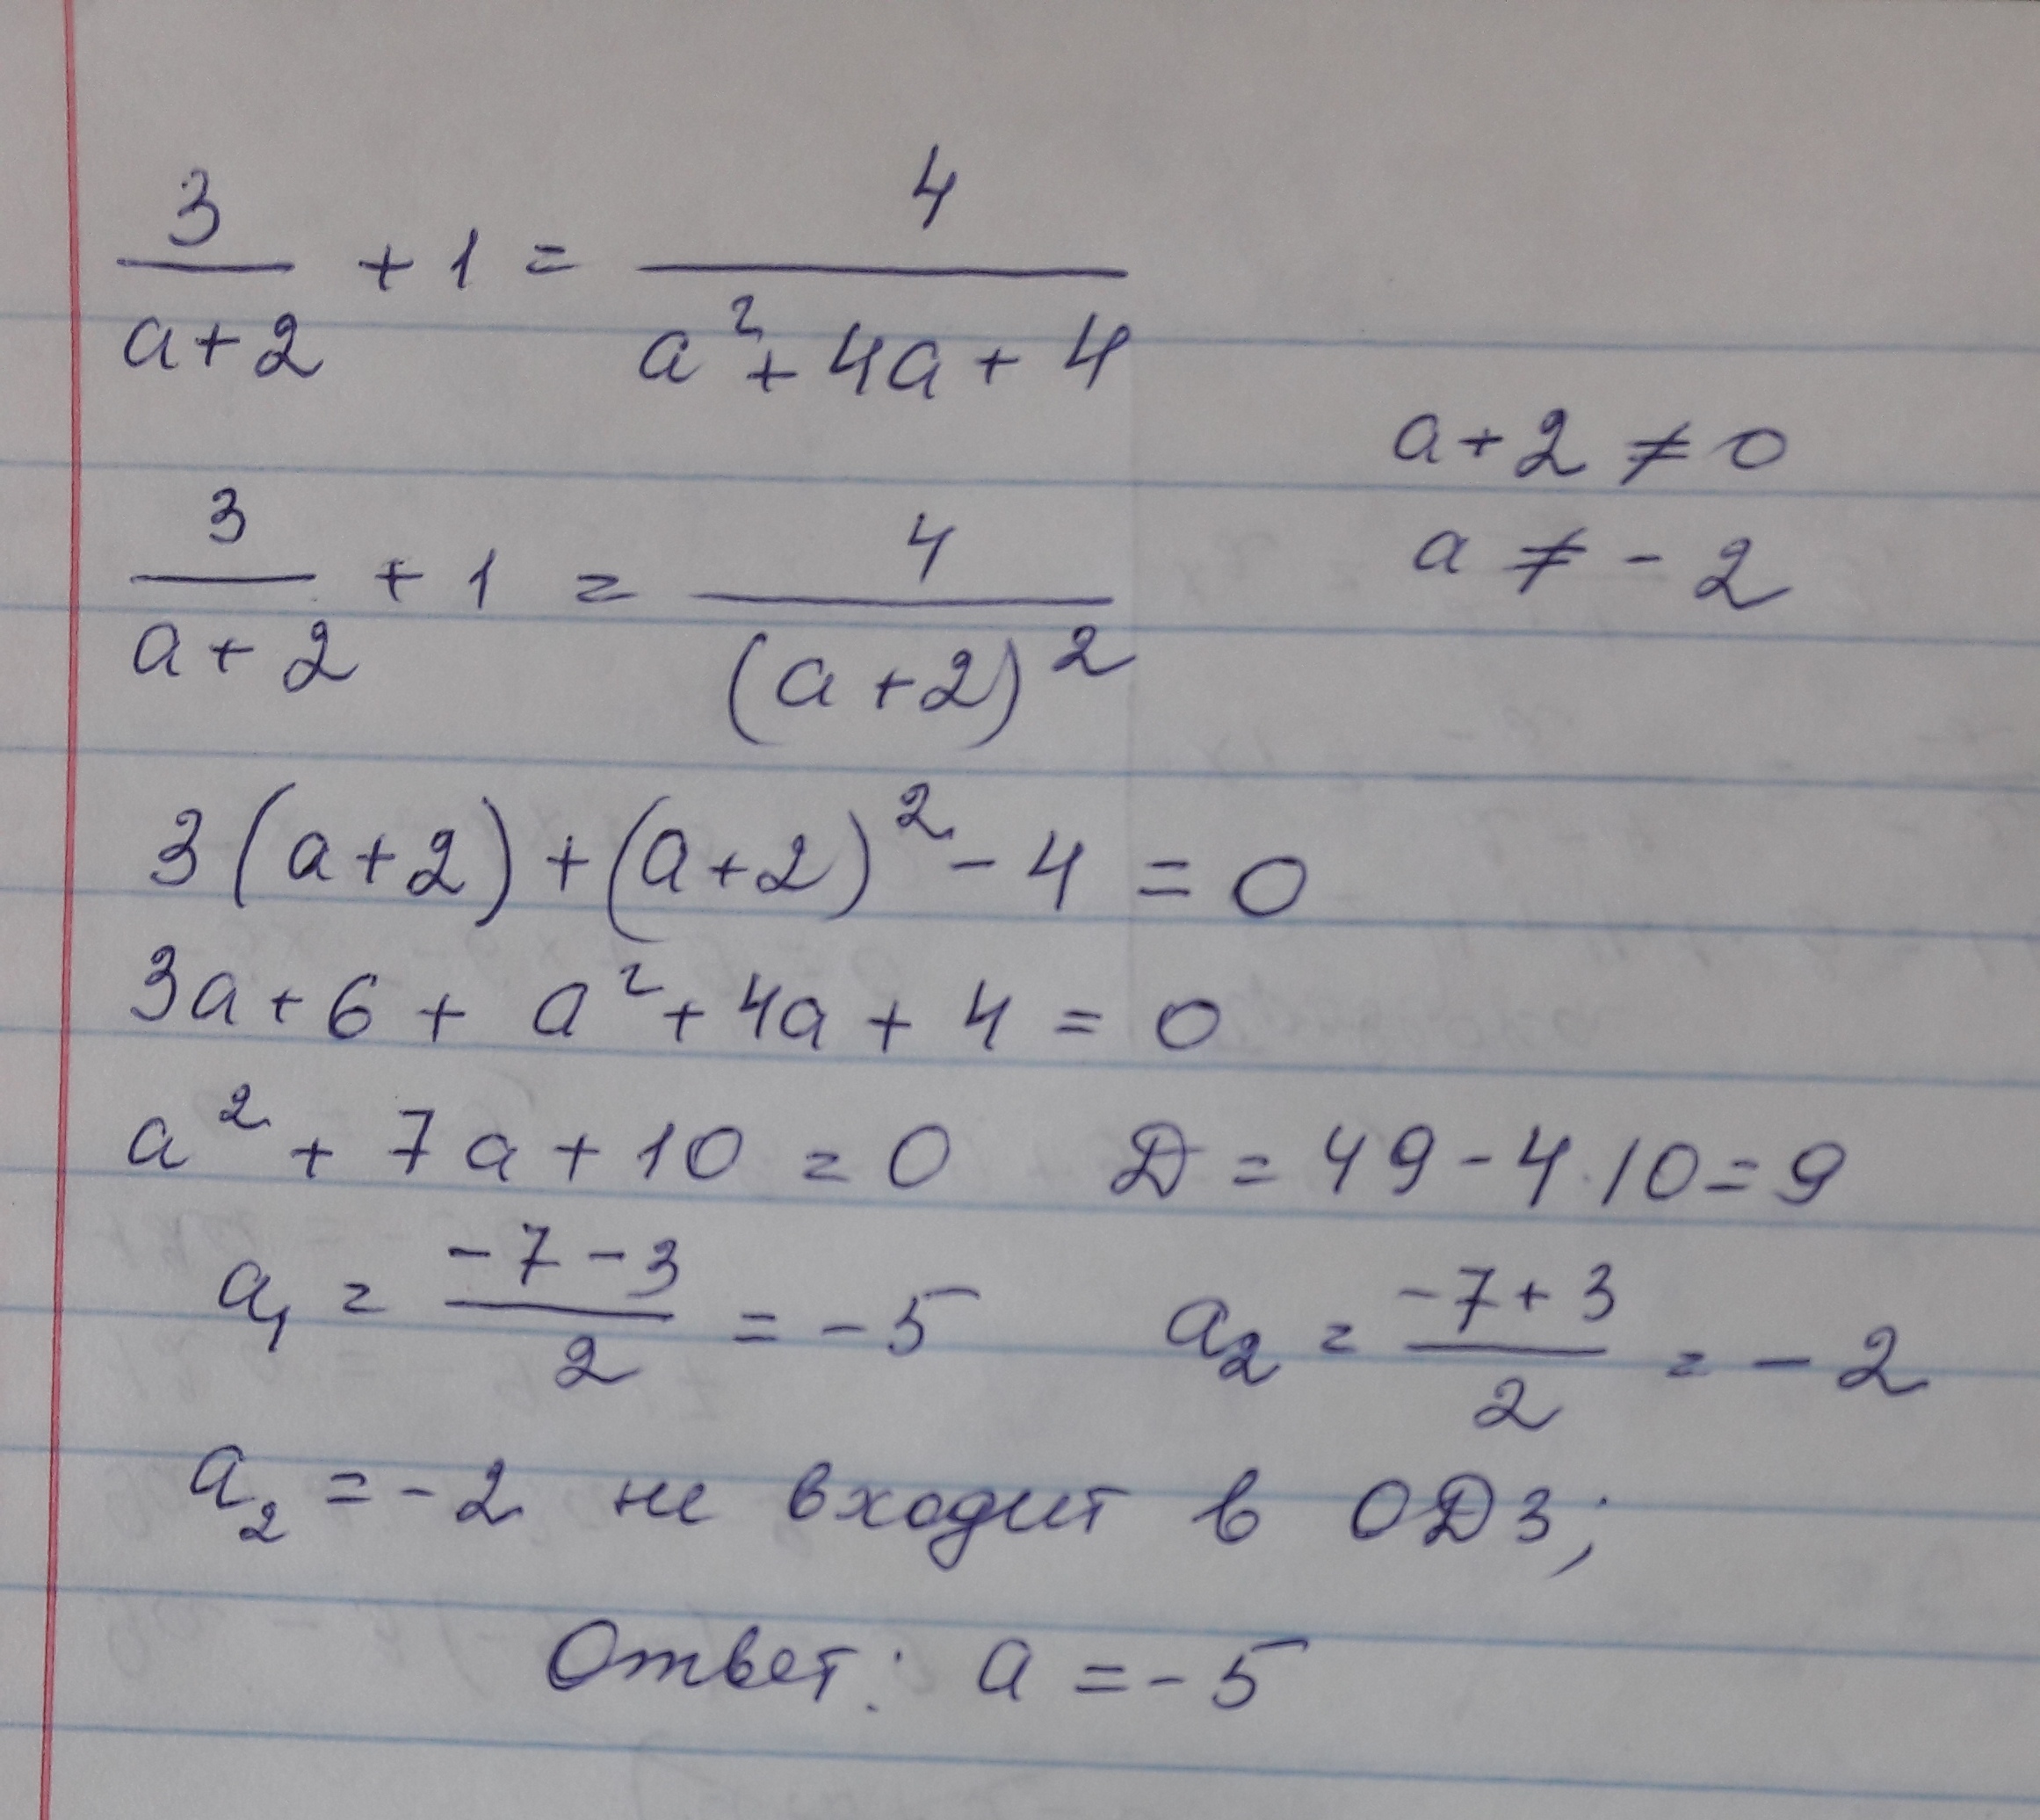 3/(a+2) + 1 = 4/(a²+4a+4)
a+2 ≠ 0
a ≠ -2
3/(a+2) + 1 = 4/(a+2)²
3(a+2)+(a+2)²-4 = 0
3a+6+a²+4a+4 = 0
a²+7a+10 = 0 D = 49-4·10 = 9
a₁ = (-7-3)/2 = -5 a₂ = (-7+3)/2 = -2
a₂ = -2 не входит в ОДЗ;
Ответ: a = -5